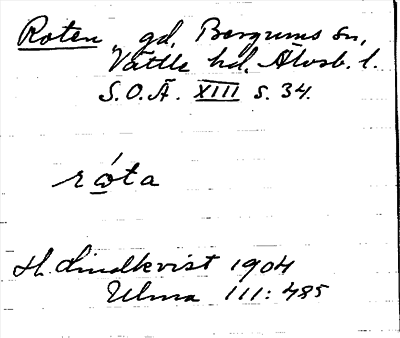 Roten, gd, Bergums sn,
Vättle hd. Älvsb. l.
S.O.Ä. XIII s. 34.
róta
H. Lindkvist 1904
Ulma 111:485